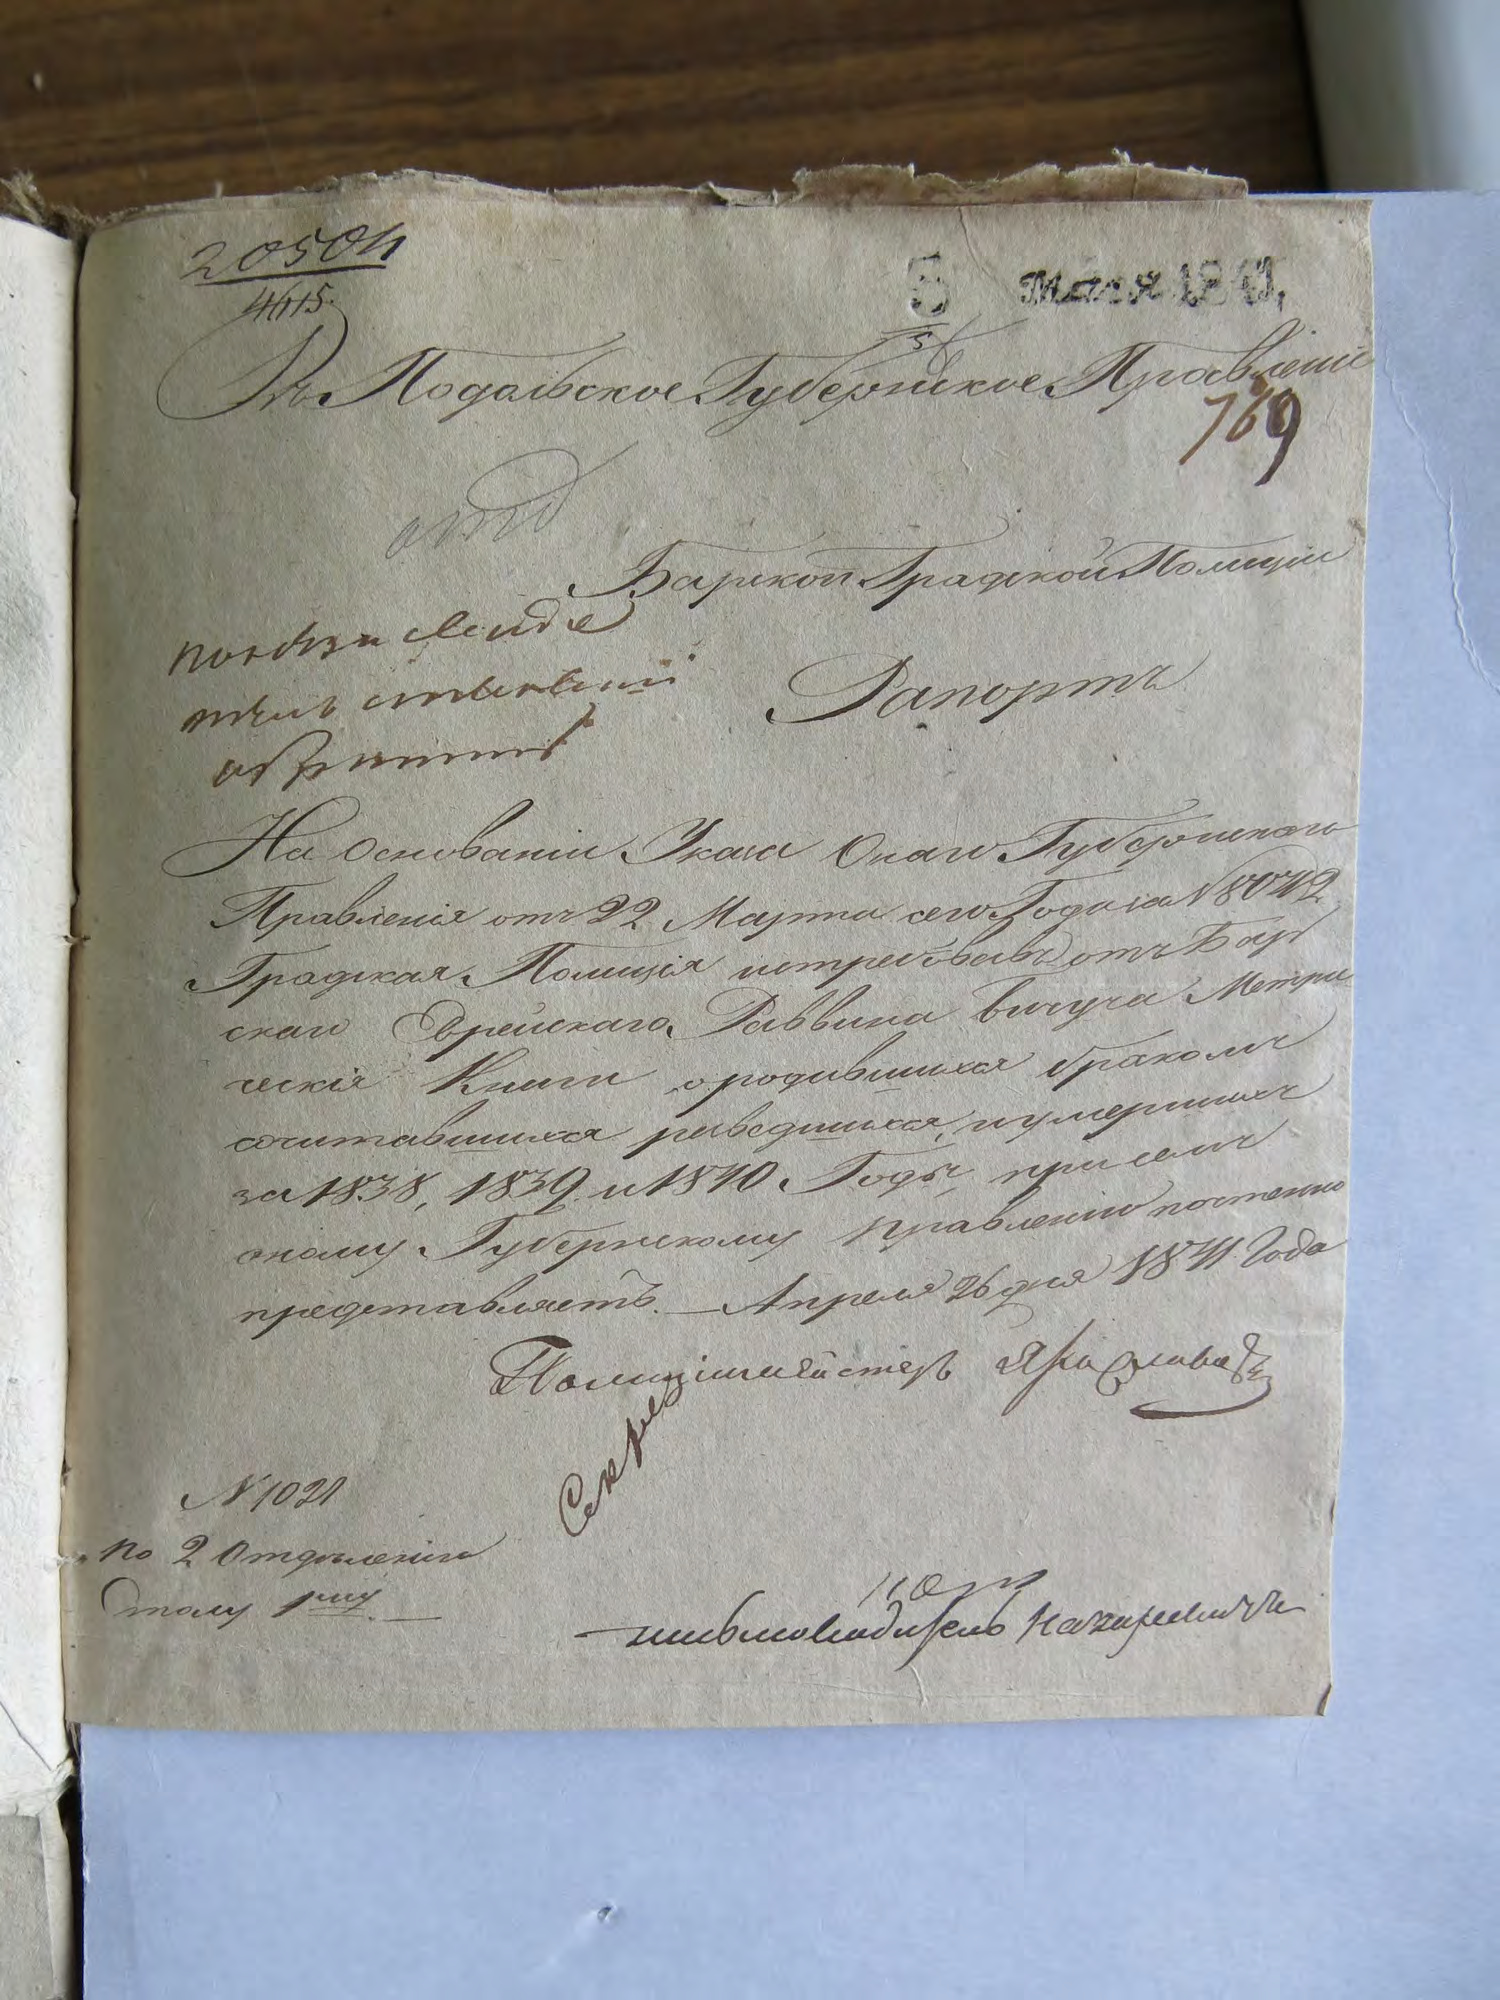 20504
4615.
5 Мая 1841,
Въ Подольское Губернское Правленіе
769
Барской Градской Полиціи
Рапортъ
На Основаніи Указа Онаго Губернскаго
Правленія отъ 22 Марта сего Года за N 8042
Градская Полиція истребовавъ отъ Бар
скаго Еврейскаго Раввина Метри
ческія Книги о родившихся бракомъ
сочитавшихся разведшихся, и умершихъ
за 1838, 1839. и 1840 Годы, при семъ
оному Губернскому Правленію почтенно
представляетъ. — Апреля 26 дня 1841. Года
Полиціймейстеръ
Секрет
N 1021
По 2 Отделенію
Столу 1му —
письмоводитель